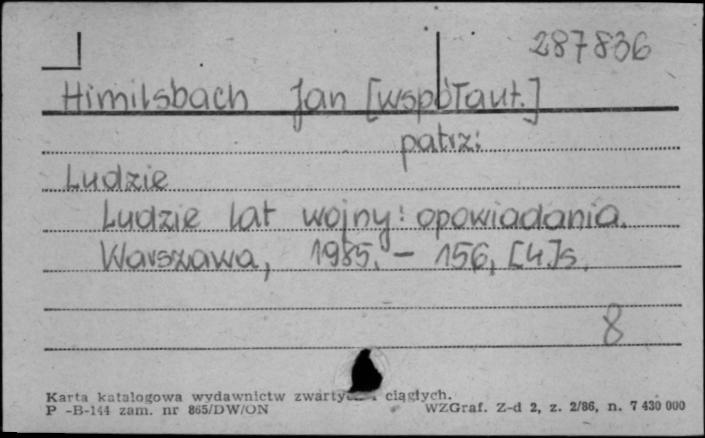 287836
Himilsbach Jan [współaut.]
patrz:
Ludzie
Ludzie lat wojny: opowiadania.
Warszawa, 1985. - 156, [4]s.
8
Karta katalogowa wydawnictw ciągłych.
P -B-144 zam. nr 865/DW/ON WZGraf. Z-d 2, z. 2/86, n. 7 430 000